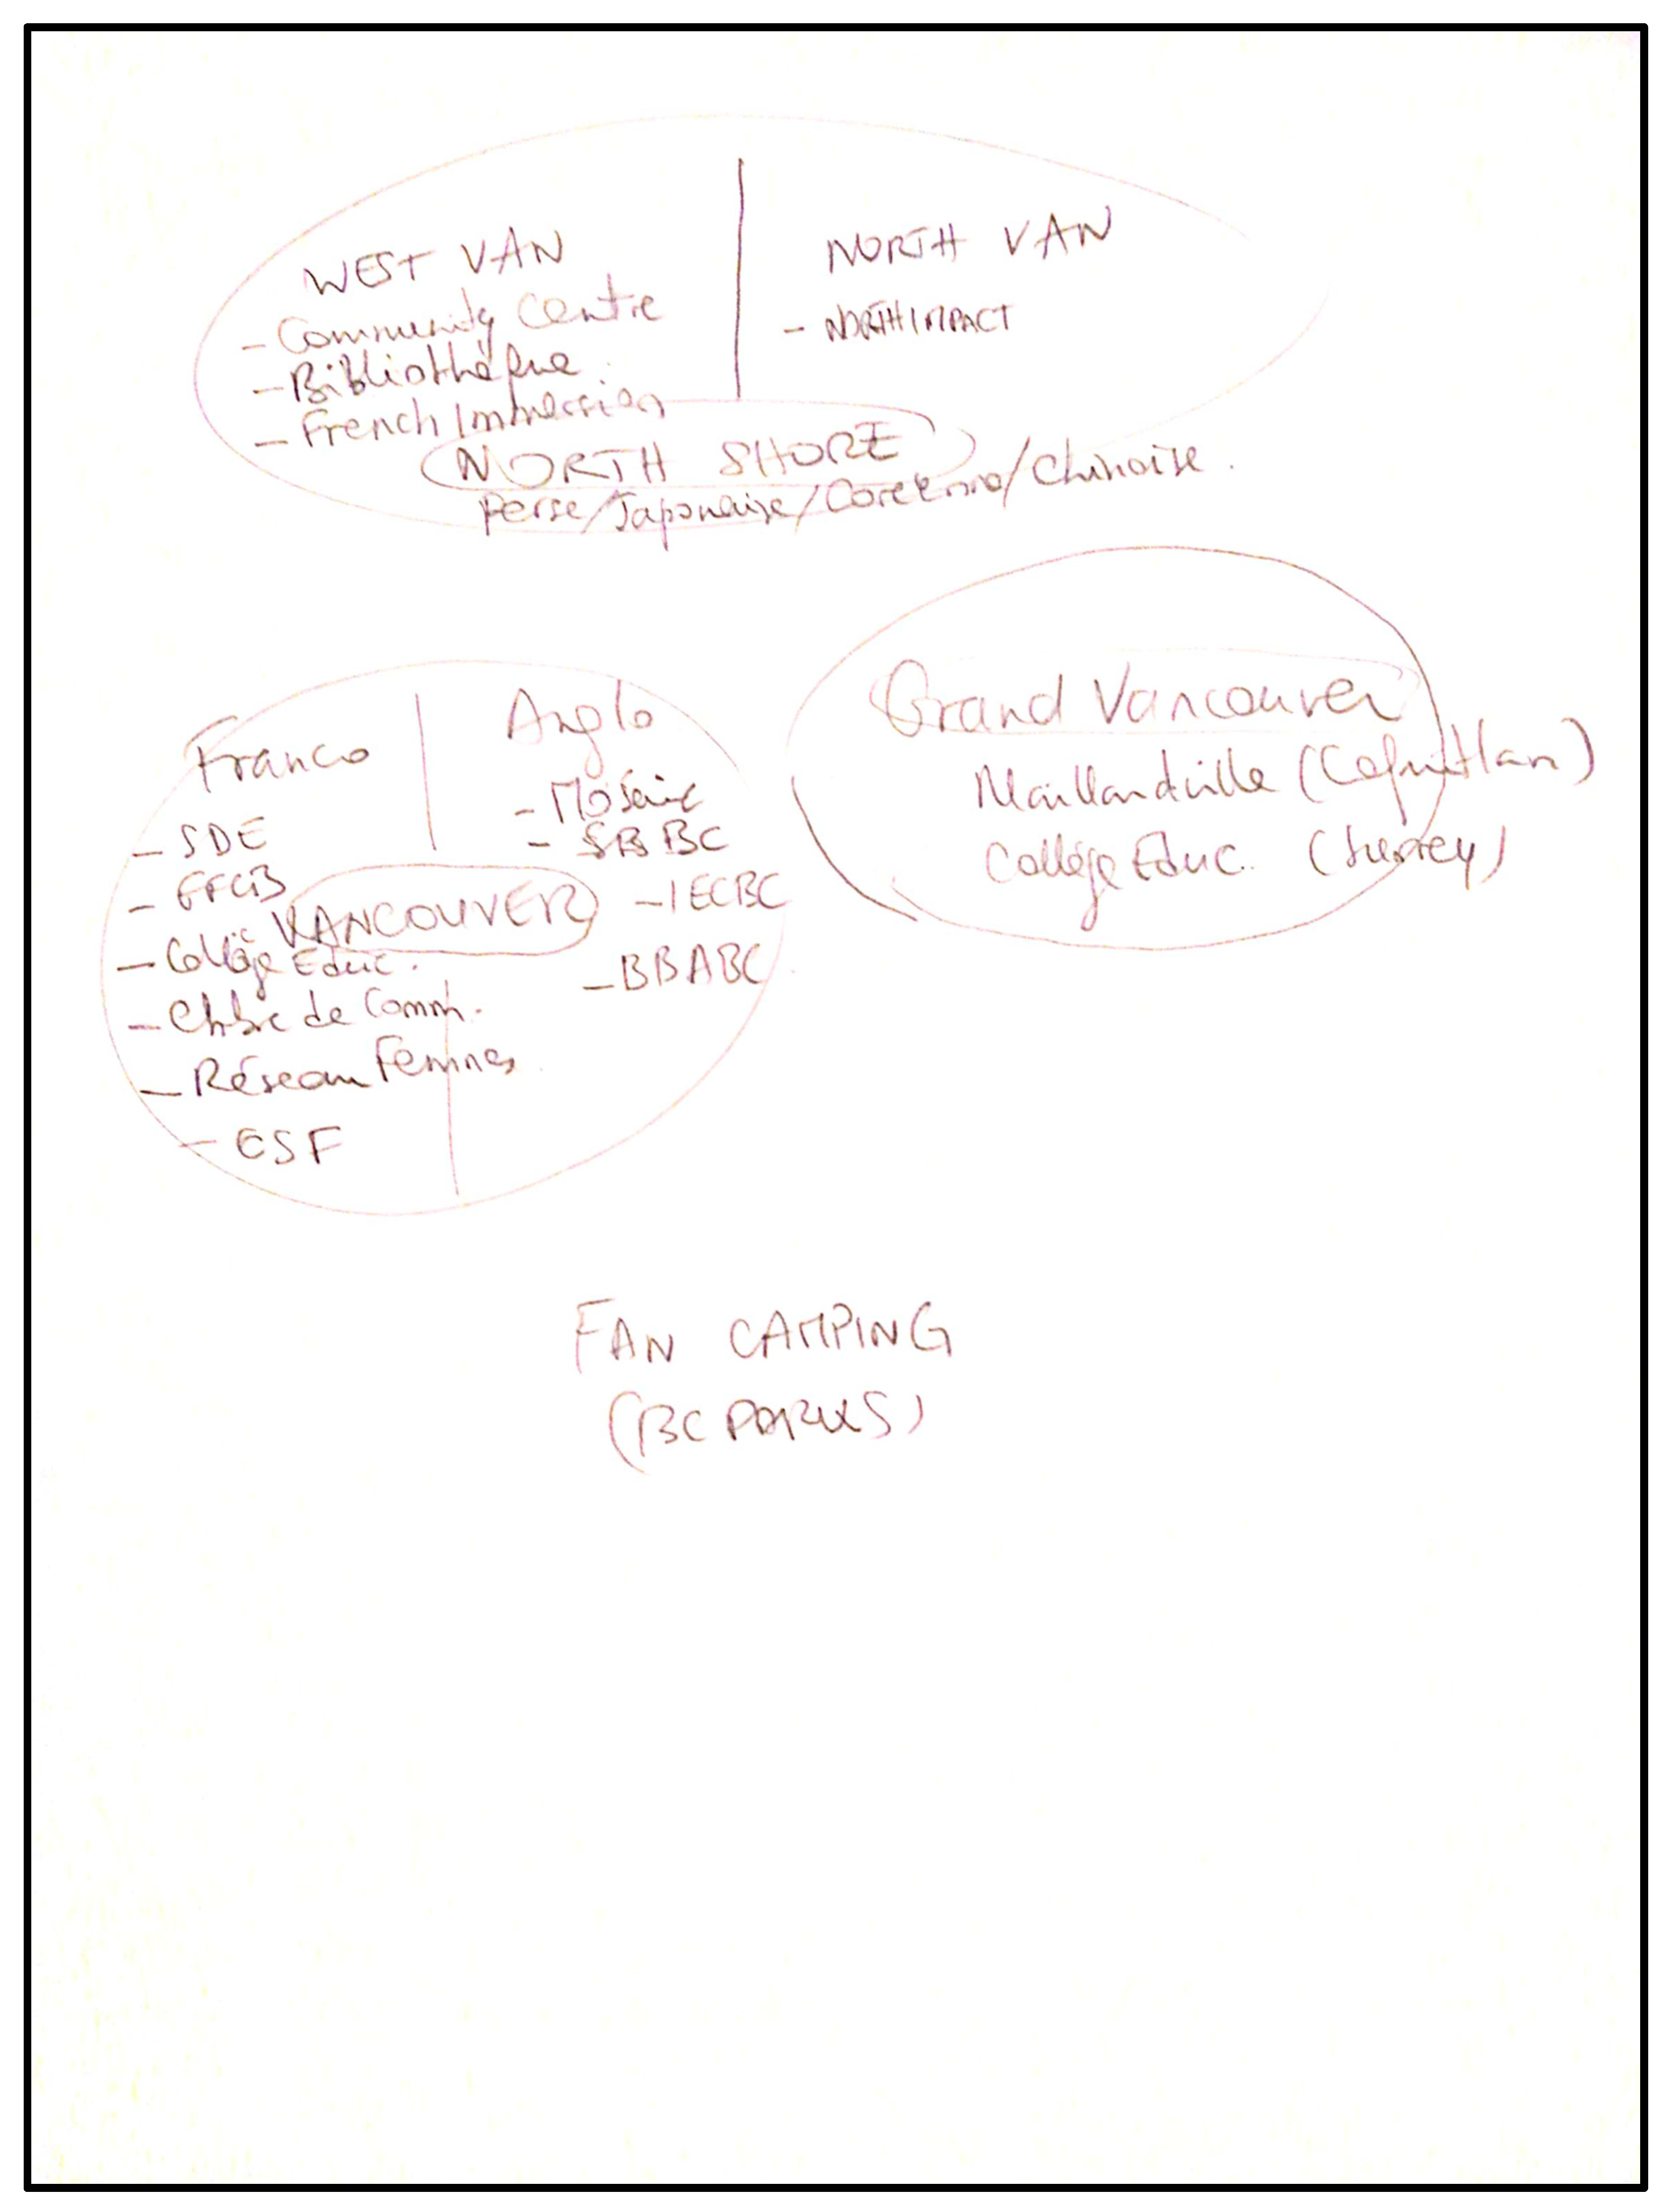 WEST VAN
- Community Centre
- Bibliothèque
- French Immersion
NORTH VAN
- NORTH IMPACT
NORTH SHORE
Perse/Japonaise/Coréenne/Chinoise.
Grand Vancouver
Maillardville (Coquitlam)
Collège Educ. (Surrey)
Franco
- SDE
- FFCB
- Collège Educ.
- Chbre de Comm.
- Réseau Femmes
- CSF
VANCOUVER
Anglo
- Mosaic
- SBBC
- IECBC
- BBABC
FAN CAMPING
(BC PARKS)